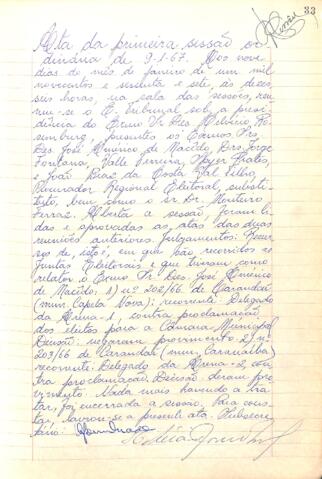 33
Ata da primeira sessão or
dinária de 9-1-67. Aos nove
dias do mês de janeiro de um mil
novecentos e sessenta e sete, às dezes
seis horas, na sala das sessões, reu
niu-se o E. Tribunal sob a presi
dência do Exmo Sr. Des. Melwin Ro
senburg, presentes os Exmos Srs.
Des. José Américo de Macêdo, Drs. Jorge
Fontana, Valle Ferreira,
e João Braz da Costa Val Filho,
Procurador Regional Eleitoral, substi
tuto, bem como o sr. Dr. Monteiro
Ferraz. Aberta a sessão, foram li
das e aprovadas as atas das duas
reuniões anteriores. Julgamentos: Recur
sos de, isto é, em que são recorridos as
Juntas Eleitorais e que tiveram como
relator o Exmo Sr. Des. José Américo
de Macêdo. 1) nº 202/66 de Carandaí
(mun. Capela Nova); recorrente: Delegado
da Arena-1, contra proclamação
dos eleitos para a Câmara Municipal
Decisão: negaram provimento. 2) nº
203/66 de Carandaí (mun. Caranaíba)
recorrente: Delegado da Arena-2, con
tra proclamação. Decisão: deram pro
vimento. Nada mais havendo a tra
tar, foi encerrada a sessão. Para cons
tar, lavrou-se a presente ata. O subsecre
tário: